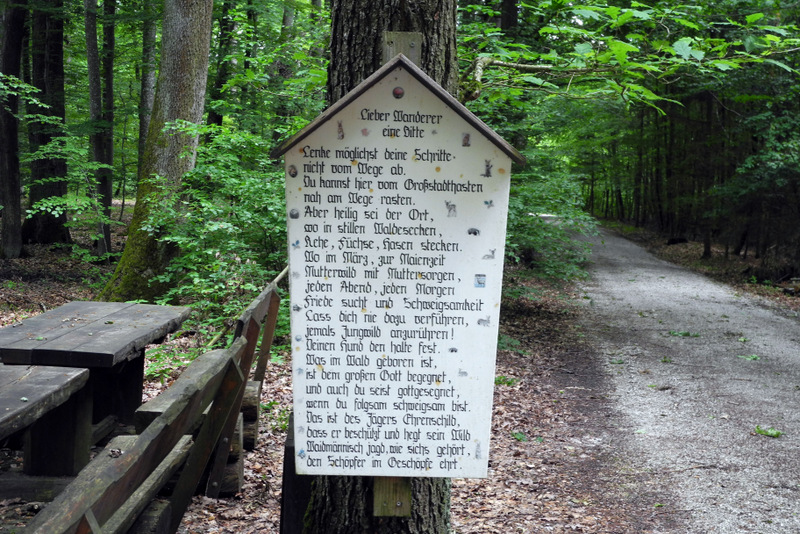 Lieber Wanderer
eine Bitte
Lenke möglichst deine Schritte
nicht vom Wege ab.
Du kannst hier vom Großstadthasten
nah am Wege rasten.
Aber heilig sei der Ort,
wo in stillen Waldesecken,
Rehe, Füchse, Hasen stecken.
Wo im März, zur Maienzeit
Mutterwild mit Muttersorgen,
jeden Abend, jeden Morgen
Friede sucht und Schweigsamkeit
Lass dich nie dazu verführen,
jemals Jungwild anzurühren!
Deinen Hund den halte fest.
Was im Wald geboren ist,
ist dem großen Gott begegnet,
und auch du seist gottgesegnet,
wenn du folgsam schweigsam bist.
Das ist des Jägers Ehrenschild,
dass er beschützt und hegt sein Wild
Waidmännisch jagd, wie sichs gehört,
den Schöpfer im Geschöpfe ehrt.